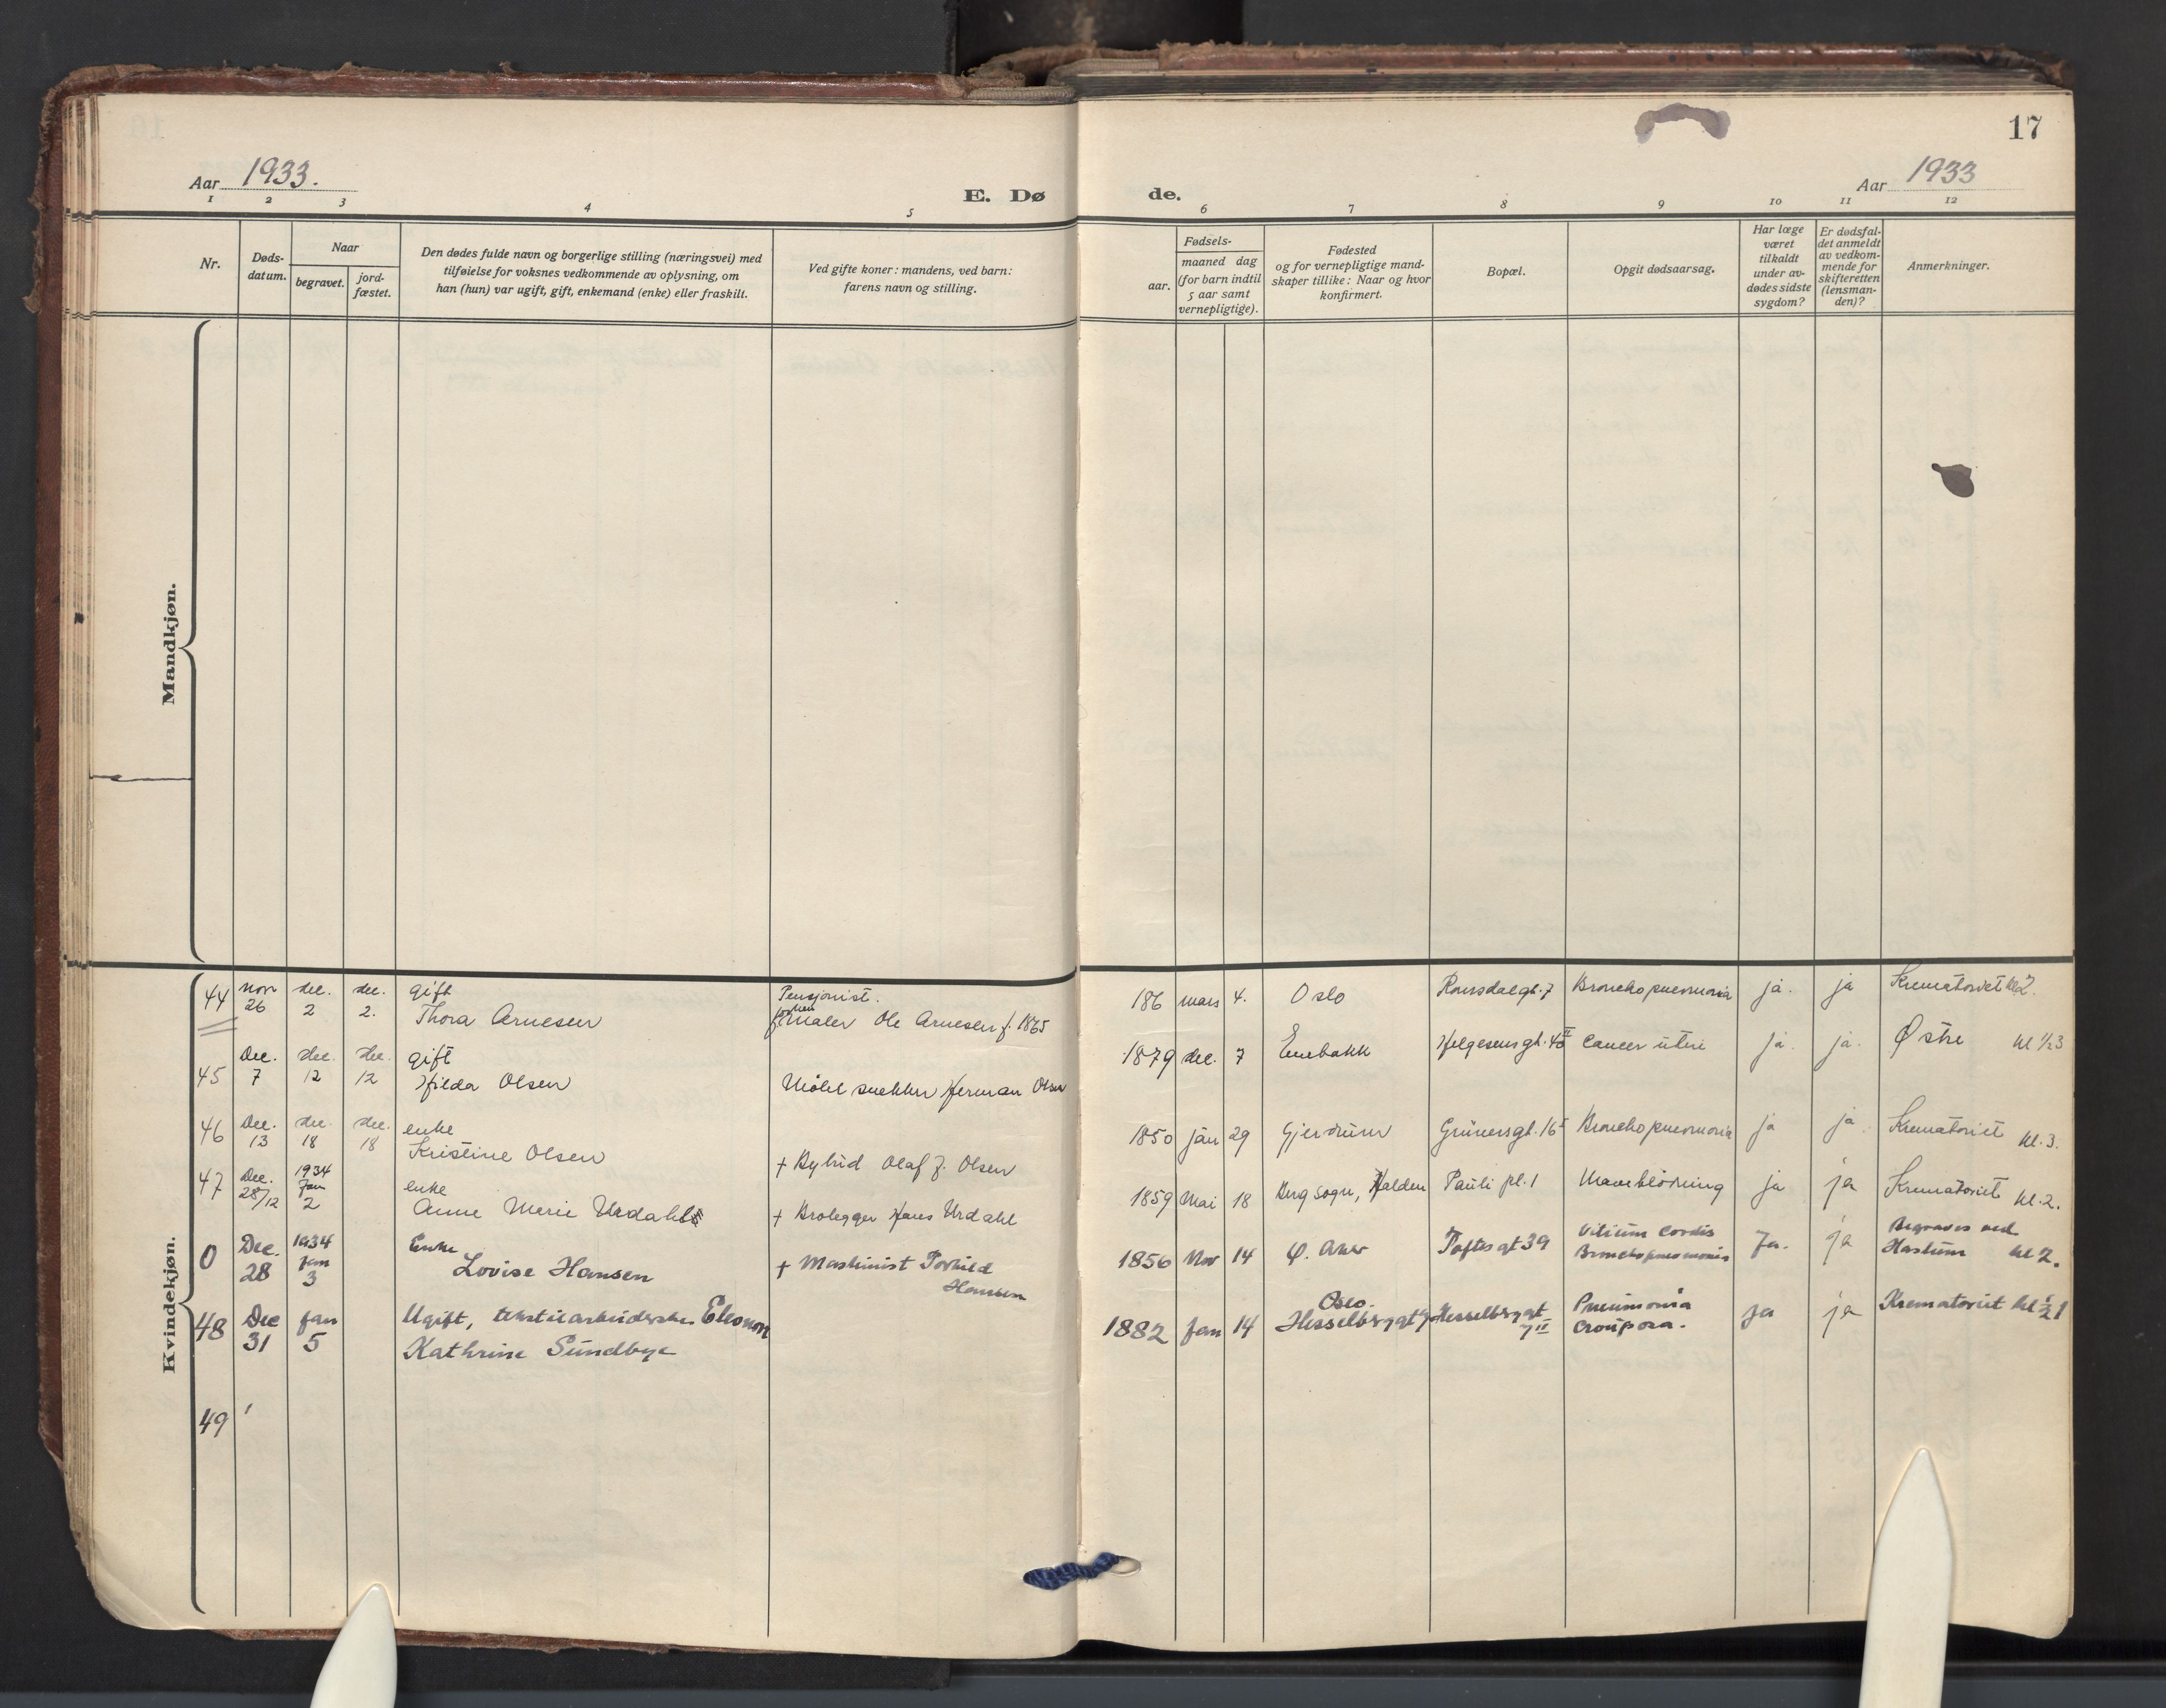 17
Aar 1933.
E. Dø
de.
Aar 1933
1 2 3 4 5 6 7 8 9 10 11 12
Nr.
Døds-
datum.
Naar
begravet.
jord-
fæstet.
Den dødes fulde navn og borgerlige stilling (næringsvei) med
tilføielse for voksnes vedkommende av oplysning, om
han (hun) var ugift, gift, enkemand (enke) eller fraskilt.
Ved gifte koner: mandens, ved barn:
farens navn og stilling.
Fødsels-
aar.
maaned dag
(for barn indtil
5 aar samt
vernepligtige).
Fødested
og for vernepligtige mand-
skaper tillike: Naar og hvor
konfirmert.
Bopæl.
Opgit dødsaarsag.
Har læge
været
tilkaldt
under av-
dødes sidste
sygdom?
Er dødsfal-
det anmeldt
av vedkom-
mende for
skifteretten
(lensman-
den)?
Anmerkninger.
Mandkjøn.
Kvindekjøn.
44 nov 26 dec. 2 dec. 2. gift
Thora Arnesen
Pensjonist.
maler Ole Arnesen f. 1865
186 mars 4. Oslo Romsdalsgt. 7 Bronchopneumonia ja. ja Krematoriet kl 2.
45 Dec. 7 dec. 12 dec. 12 gift
Hilda Olsen
Møbelsnekker Herman Olsen
1879 dec. 7 Enebakk Helgesensgt. 40 II Cancer uteri ja. ja. Østre kl 1/2 3
46 Dec. 13 dec. 18 dec. 18 enke
Kristine Olsen
+ Bybud Olaf J. Olsen
1850 jan 29 Gjerdrum Grünersgt. 16 I Bronchopneumonia ja ja Krematoriet kl. 3.
47 Dec. 28/12 1934 Jan 2 enke
Anne Marie Urdahl
+ Brolegger Hans Urdahl
1859 Mai 18 Berg sogn, Halden Pauli pl. 1 Maveblødning ja ja Krematoriet kl. 2.
0 Dec. 28 1934 Jan 3 Enke
Lovise Hansen
+ Maskinist Torkild
Hansen
1856 Nov 14 Ø. Aker Toftesgt 39 Vitium cordis
Bronchopneumonia Ja. ja Begraves ved
Haslum kl 2.
48 Dec 31 Jan 5 Ugift, tekstilarbeiderske Eleonora
Kathrine Sundbye
1882 Jan 14 Oslo.
Hesselbergsgt 7 Hesselbergsgt
7 II Pneumonia
crouposa. ja ja Krematoriet kl 1/2 1
49